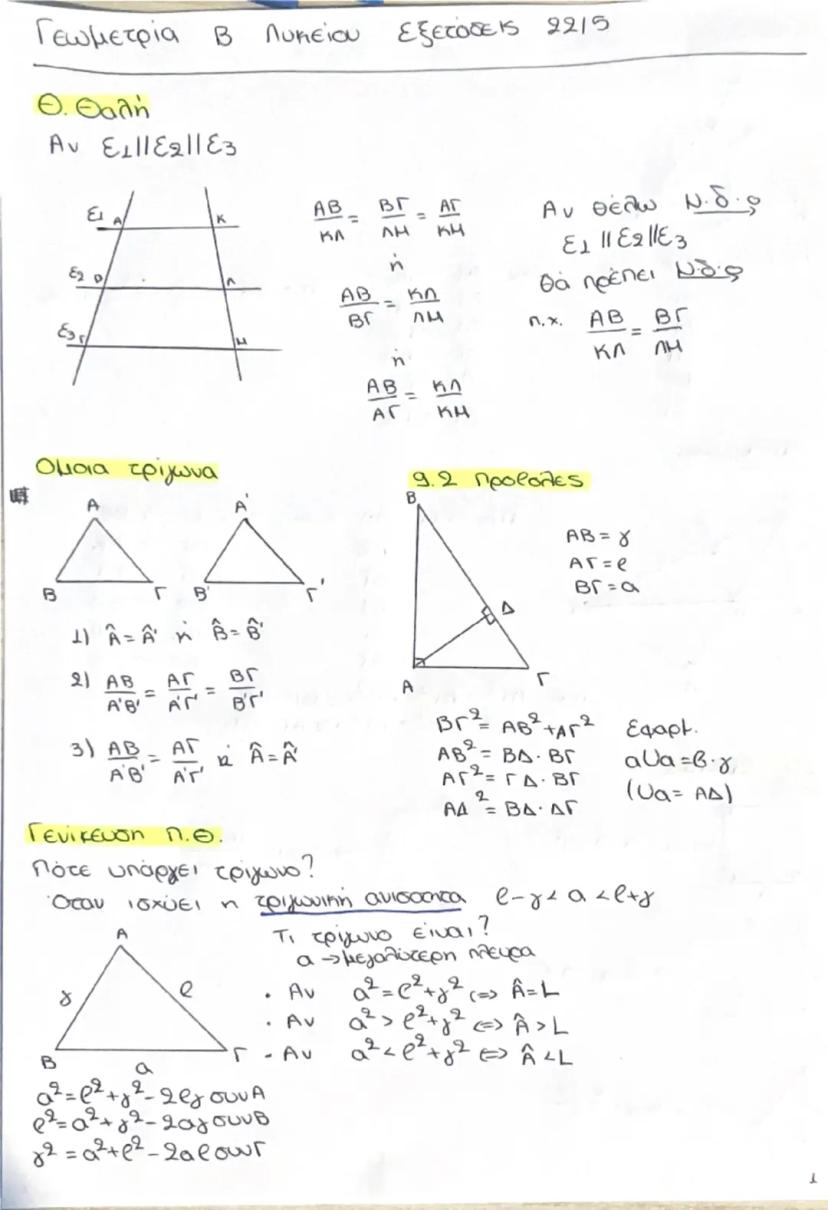 Γεωμετρία Β Λυκείου Εξετάσεις 22/5
Θ. Θαλή
Αν ε1//ε2//ε3
ε1 Α Κ
ε2 Β Λ
ε3 Γ Μ
ΑΒ/ΚΛ = ΒΓ/ΛΜ = ΑΓ/ΚΜ
ή
ΑΒ/ΒΓ = ΚΛ/ΛΜ
ή
ΑΒ/ΑΓ = ΚΛ/ΚΜ
Αν θέλω Ν.δ.ο
ε1 // ε2 // ε3
θά πρέπει Ν.δ.ο
π.χ. ΑΒ/ΚΛ = ΒΓ/ΛΜ
Όμοια τρίγωνα
Α Α'
Β Γ Β' Γ'
1) Â = Â' ή B̂ = B̂'
2) ΑΒ/Α'Β' = ΑΓ/Α'Γ' = ΒΓ/Β'Γ'
3) ΑΒ/Α'Β' = ΑΓ/Α'Γ' κ Â = Â'
9.2 Προβολές
Β
Δ
Α Γ
ΑΒ = γ
ΑΓ = β
ΒΓ = α
ΒΓ² = ΑΒ² + ΑΓ²
ΑΒ² = ΒΔ · ΒΓ
ΑΓ² = ΓΔ · ΒΓ
ΑΔ² = ΒΔ · ΔΓ
Εφαρμ.
αυα = β·γ
(υα = ΑΔ)
Γενίκευση Π.Θ.
Πότε υπάρχει τρίγωνο?
Όταν ισχύει η τριγωνική ανισότητα β-γ < α < β+γ
Τι τρίγωνο είναι?
α → μεγαλύτερη πλευρά
Α
γ β
Β α Γ
· Αν α² = β² + γ² <=> Â = L
· Αν α² > β² + γ² <=> Â > L
- Αν α² < β² + γ² <=> Â < L
α² = β² + γ² - 2βγ συνΑ
β² = α² + γ² - 2αγ συνΒ
γ² = α² + β² - 2αβ συνΓ
1